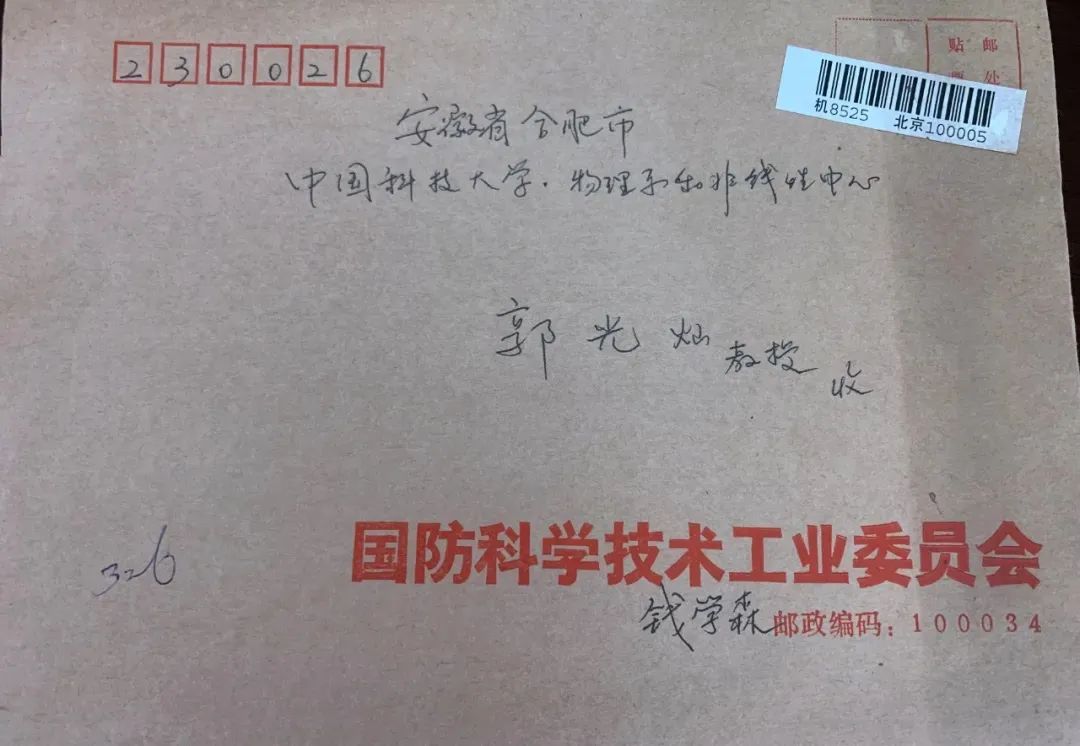 230026
贴 邮
票 处
机8525 北京100005
安徽省合肥市
中国科技大学·物理系和非线性中心
郭光灿教授 收
326
国防科学技术工业委员会
钱学森 邮政编码：100034